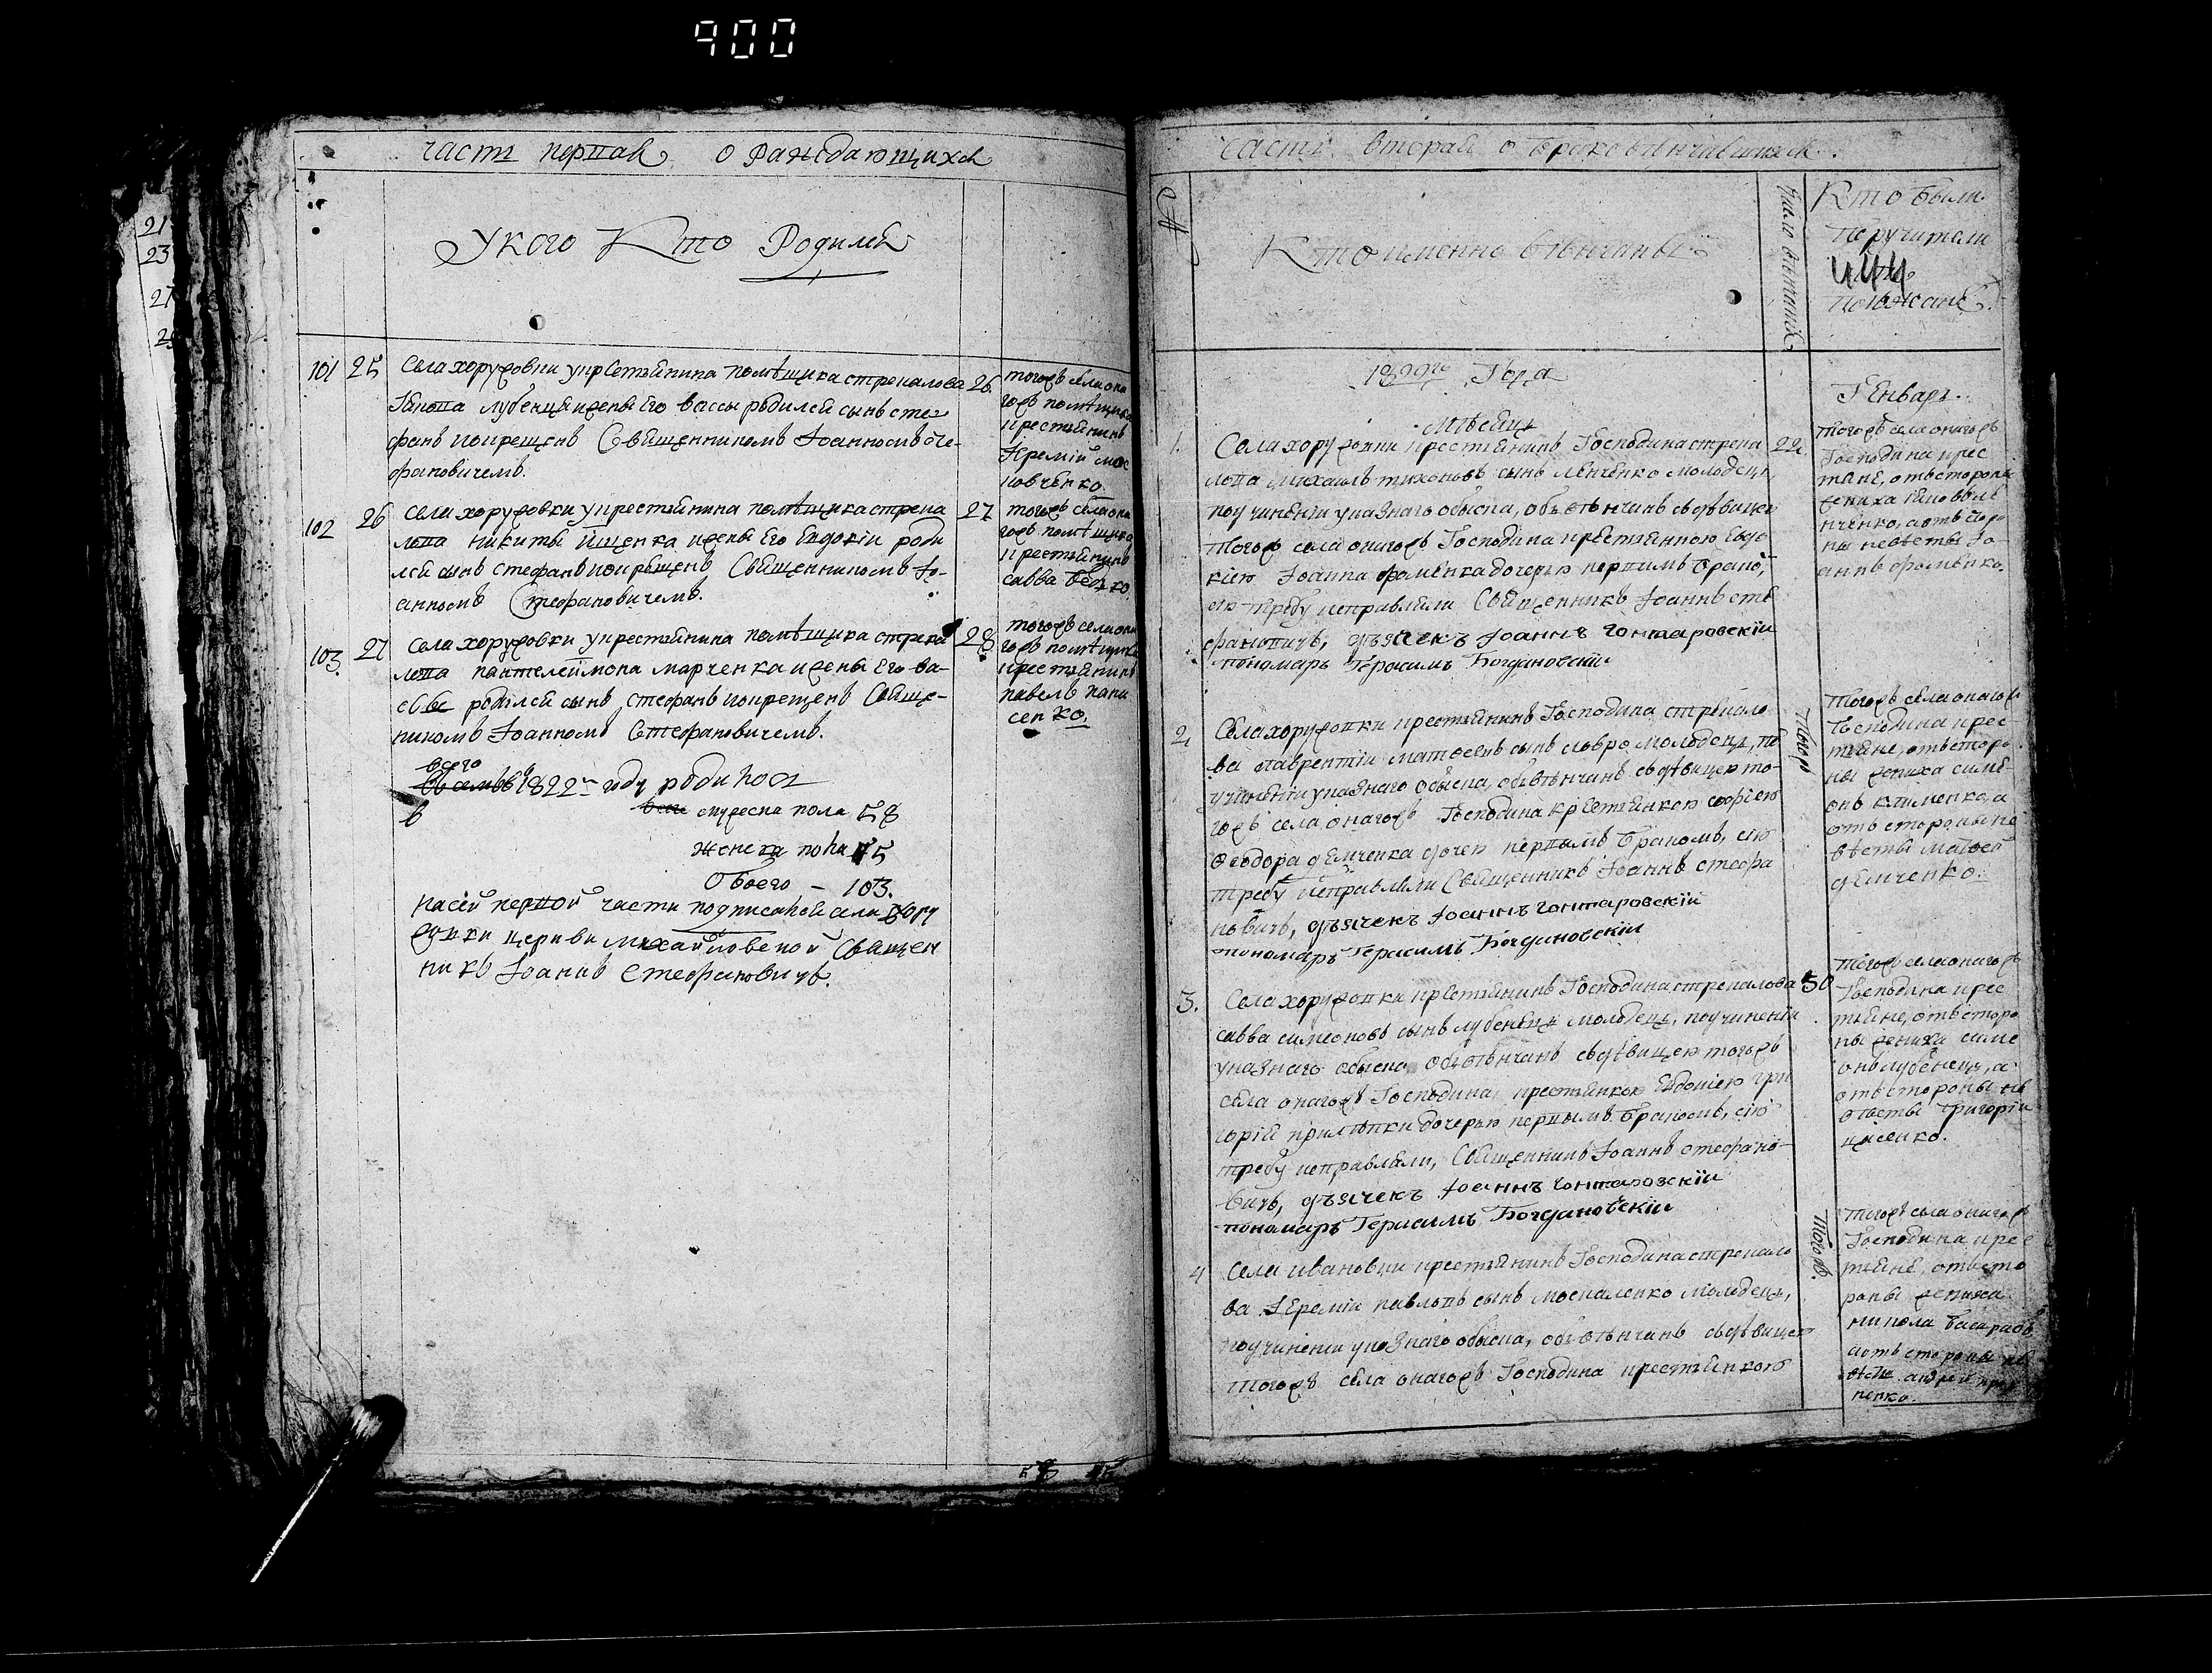 900
часть первая о раждающихся
У кого Кто Родился
101 25 Села хоружовки укрестьянина помѣщика стрекалова 26
Іякова лубенця ижены Его вассы родился сынъ сте-
фанъ ипокрещенъ Священникомъ Іоанномъ сте-
фановичемъ.
тогожъ села она
гожъ помѣщика
крестьянинъ
Іеремій мос
ковченко.
102 26 Села хоружовки укрестьянина помѣщика стрека 27
лова никиты ищенка ижены Его Евдокіи роди
лся сынъ стефанъ ипокрещенъ Священникомъ Іо-
анномъ Стефановичемъ.
тогожъ села она
гожъ помѣщика
крестьянинъ
савва
103. 27 Села хоружовки укрестьянина помѣщика стрека 28
лова пантелеймона марченка ижены Его ва-
ссы родился сынъ стефанъ ипокрещенъ Свяще-
никомъ Іоанномъ Стефановичемъ.
тогожъ села она
гожъ помѣщика
крестьянинъ
павелъ пани
сенко.
всего
1822 году родилося
мужеска пола 58
женска пола 45
Обоего – 103.
На сей первой части подписался села Хору
жовки церкви михайловской Священ
никъ Іоаннъ Стефановичъ.
21
23
27
часть вторая о бракосочитавшихся.
№
Кто именно вѣнчаны
число вѣнчанія
Кто были
Поручители
444
поѣзжане.
1822го Года
Мѣсяцъ
Генварь.
1. Села хоружовки крестьянинъ Господина стрека 22
лова михаилъ тихоновъ сынъ левченко молодецъ,
поучиненіи указнаго обыска, обвѣнчанъ сдѣвицею
тогожъ села оногожъ Господина крестьянкою Евдо
кіею Іоанна фоменка дочерью первимъ бракомъ,
сію требу исправляли Священникъ Іоаннъ сте
фановичъ, дьячекъ Іоаннъ Гонтаровскій
пономаръ Герасимъ Богдановскій
тогожъ села оногожъ
Господина крес
тяне, отъстороны
жениха
нченко, аотъ сторо
ны невѣсты Іо-
аннъ фоменко.
2, Села хоружовки крестьянинъ Господина стрекало
ва лаврентій матвеевъ сынъ молодецъ, по
учиненіи указнаго обыска, обвѣнчанъ сдѣвицею то-
гожъ села оногожъ Господина крестьянкою софіею
Ѳеодора демченка дочерю первымъ бракомъ, сію
требу исправляли Священникъ Іоаннъ стефа
новичъ, дьячекъ Іоаннъ Гонтаровскій
пономаръ Герасимъ Богдановскій
Тогожъ
тогожъ села оногожъ
Господина крес-
тьяне, отъсторо
ны жениха симе-
онъ клименко, а
отъ стороны не
вѣсты матвей
демченко.
3. Села хоружовки крестьянинъ Господина стрекалова 30
савва симеоновъ сынъ лубенецъ молодецъ, поучиненіи
указнаго обыска, обвѣнчанъ сдѣвицею тогожъ
села оногожъ Господина, крестьянкою Евдокіею гри
горія прилѣпки дочерью первымъ бракомъ, сію
требу исправляли, Священникъ Іоаннъ стефано-
вичъ, дьячекъ Іоаннъ Гонтаровскій
пономаръ Герасимъ Богдановскій
тогожъ села оногожъ
Господина крес
тьяне, отъсторо
ны жениха симе
онъ лубенецъ, а
отъ стороны не
вѣсты Григорій
4 Села ивановки крестьянинъ Господина стрекало
ва Іеремій павловъ сынъ москаленко молодецъ,
поучиненіи указнаго обыска, обвѣнчанъ сдѣвицею
тогожъ села оногожъ Господина крестьянкою
тогожъ.
тогожъ села оногожъ
Господина крес
тьяне, отъсто
роны жениха
никола
аотъ стороны не
вѣсты андрей